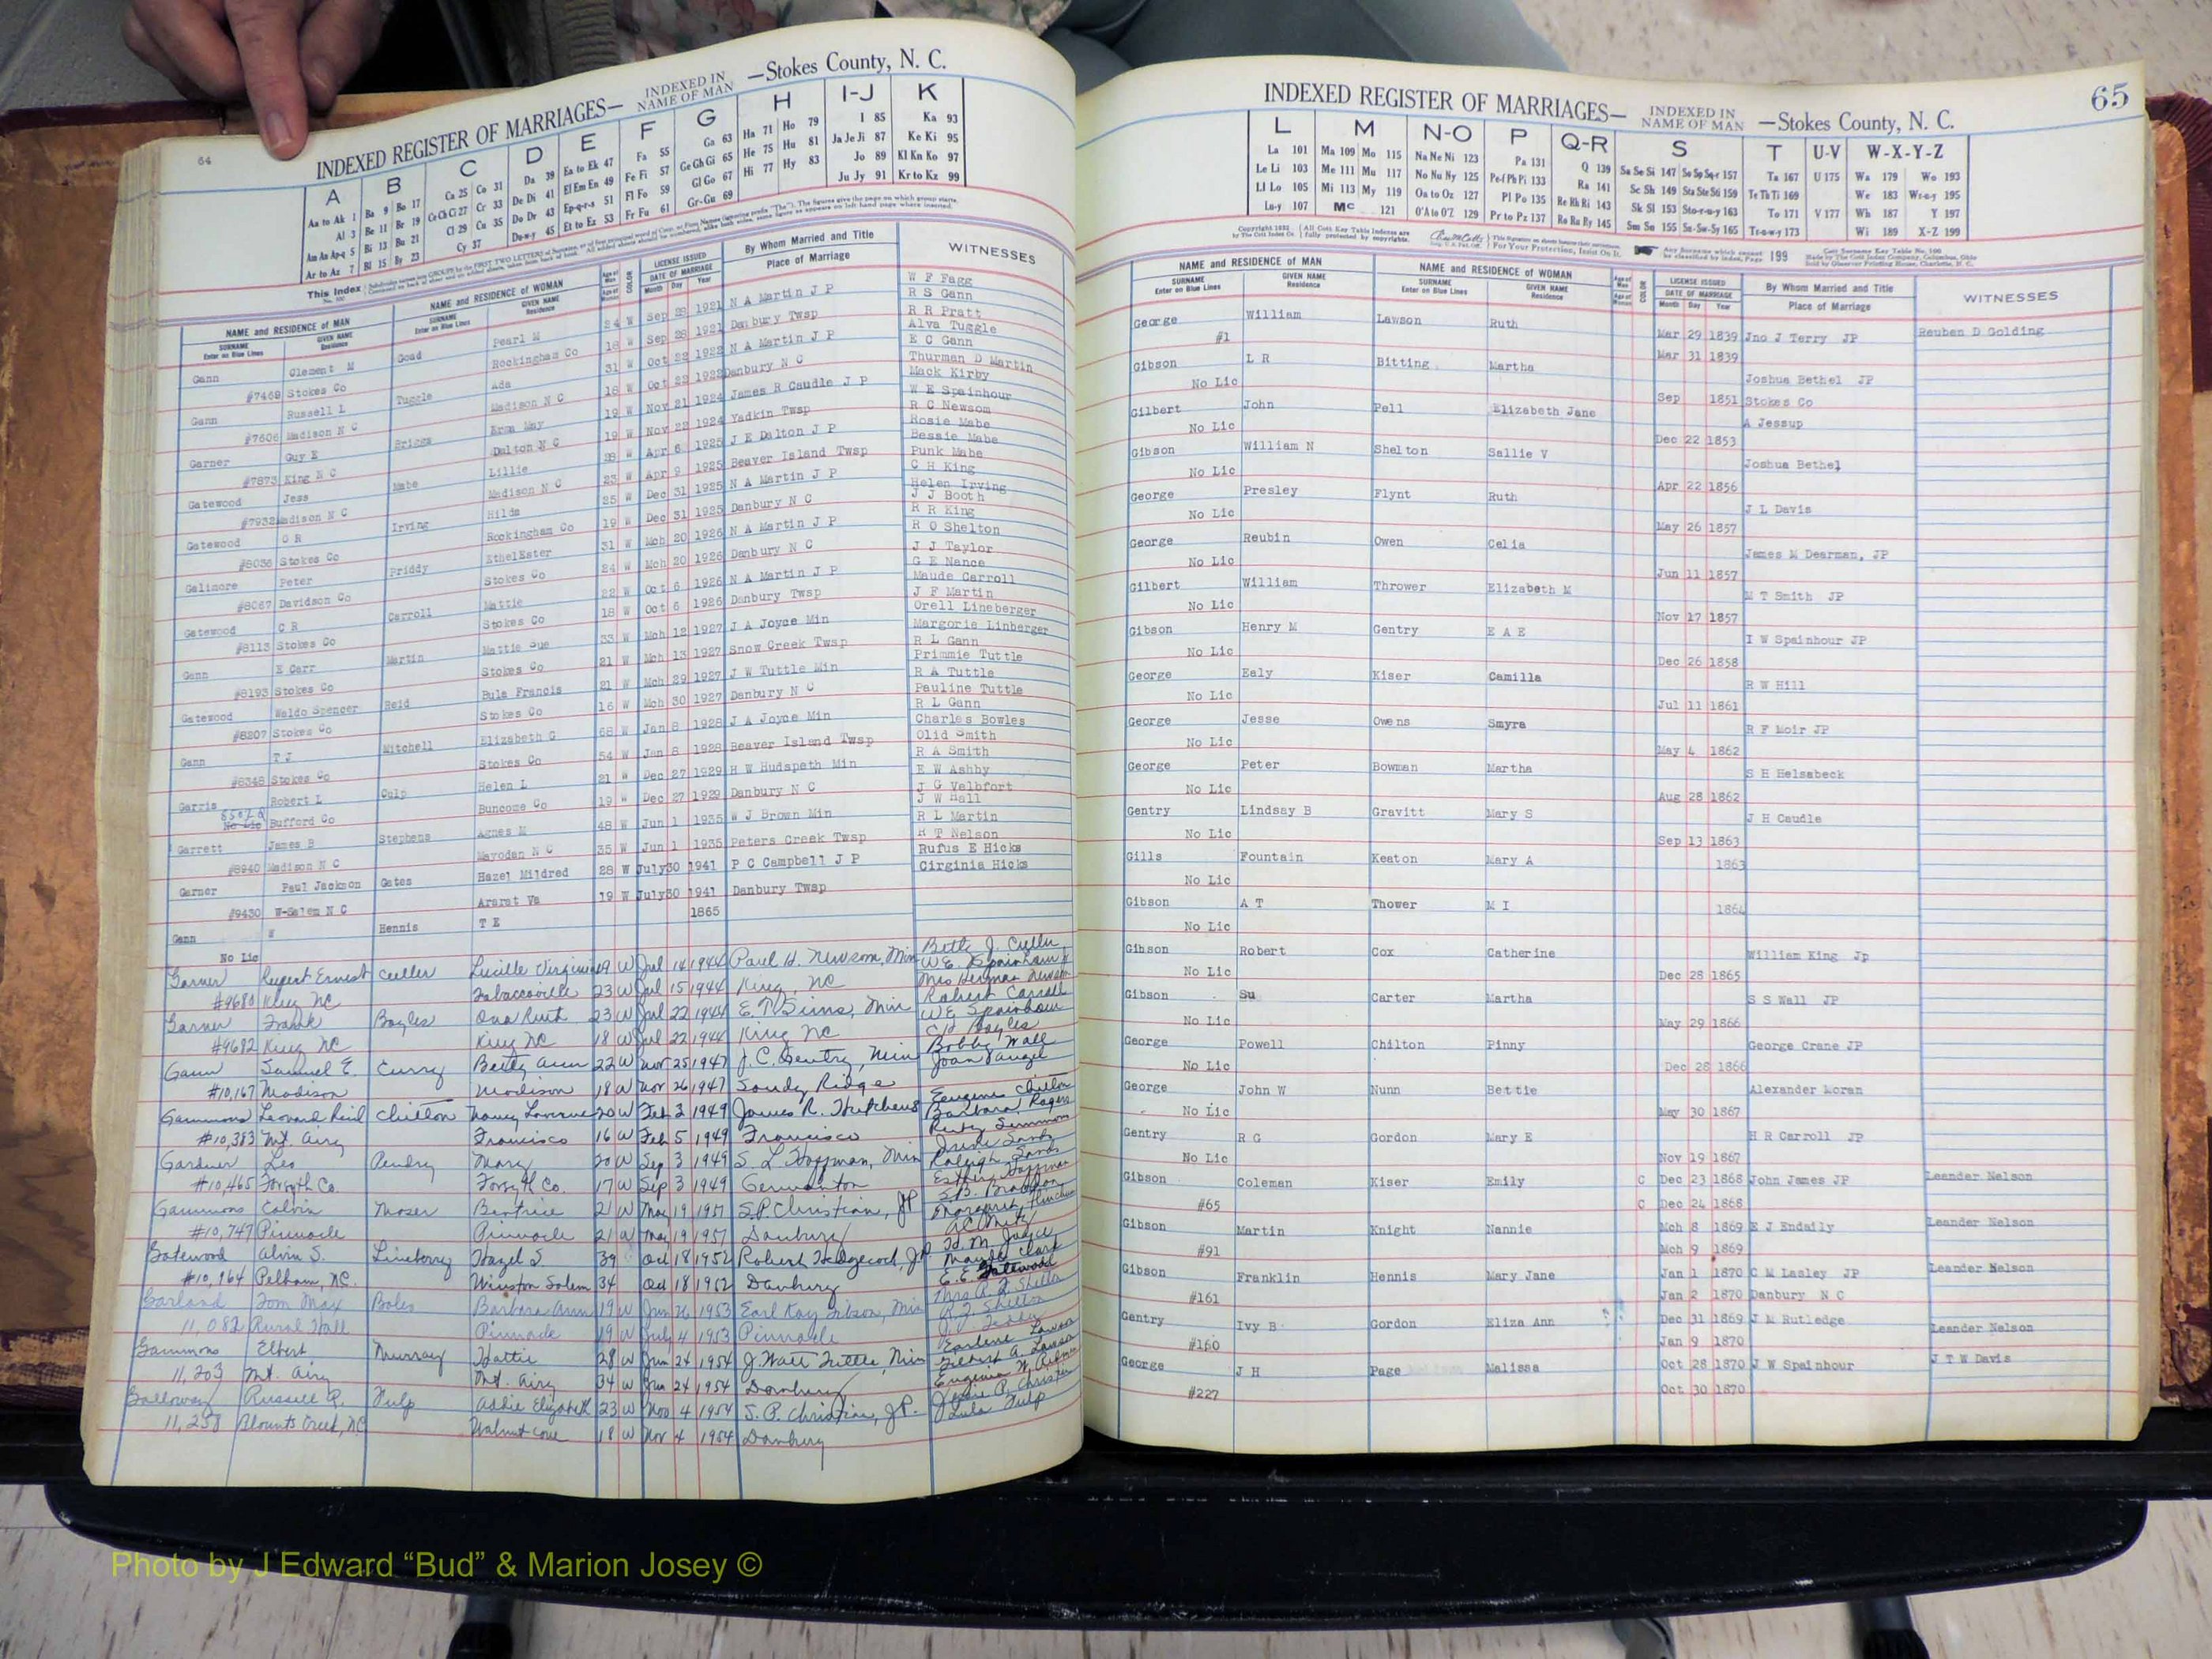 64
INDEXED REGISTER OF MARRIAGES— INDEXED IN NAME OF MAN —Stokes County, N. C.
A B C D E F G H I-J K
Aa to Ak 1 Ba 9 Bo 17 Ca 25 Co 31 Da 39 Ea to Ek 47 Fa 55 Ga 63 Ha 71 Ho 79 I 85 Ka 93
Al 3 Be 11 Br 19 Ce Ch Ci 27 Cr 33 De Di 41 El Em En 49 Fe Fi 57 Ge Gh Gi 65 He 75 Hu 81 Ja Je Ji 87 Ke Ki 95
Am An Ap-q 5 Bi 13 Bu 21 Cl 29 Cu 35 Do Dr 43 Ep-q-r-s 51 Fl Fo 59 Gl Go 67 Hi 77 Hy 83 Jo 89 Kl Kn Ko 97
Ar to Az 7 Bl 15 By 23 Cy 37 Du-w-y 45 Et to Ez 53 Fr Fu 61 Gr-Gu 69 Ju Jy 91 Kr to Kz 99
NAME and RESIDENCE OF MAN NAME and RESIDENCE OF WOMAN LICENSE ISSUED By Whom Married and Title WITNESSES
SURNAME Enter on Blue Lines GIVEN NAME Residence SURNAME Enter on Blue Lines GIVEN NAME Residence COLOR DATE OF MARRIAGE Month Day Year Place of Marriage
Gann Clement M Goad Pearl M 24 W Sep 28 1921 N A Martin J P W F Fagg
R S Gann
#7469 Stokes Co Rockingham Co 18 W Sep 28 1921 Danbury Twsp R R Pratt
Gann Russell L Tuggle Ada 31 W Oct 22 1922 N A Martin J P Alva Tuggle
E C Gann
#7606 Madison N C Madison N C 18 W Oct 22 1922 Danbury N C Thurman D Martin
Garner Guy E Briggs Erma May 19 W Nov 21 1924 James R Caudle J P Mack Kirby
W E Spainhour
#7873 King N C Dalton N C 19 W Nov 22 1924 Yadkin Twsp R C Newsom
Gatewood Jess Mabe Lillie 28 W Apr 6 1925 J E Dalton J P Rosie Mabe
Bessie Mabe
#7932 Madison N C Madison N C 23 W Apr 9 1925 Beaver Island Twsp Punk Mabe
Gatewood O R Irving Hilda 25 W Dec 31 1925 N A Martin J P C H King
Helen Irving
#8036 Stokes Co Rockingham Co 19 W Dec 31 1925 Danbury N C J J Booth
Galimore Peter Priddy EthelEster 31 W Mch 20 1926 N A Martin J P R R King
R O Shelton
#8067 Davidson Co Stokes Co 24 W Mch 20 1926 Danbury N C J J Taylor
Gatewood C R Carroll Mattie 22 W Oct 6 1926 N A Martin J P G E Nance
Maude Carroll
#8113 Stokes Co Stokes Co 18 W Oct 6 1926 Danbury Twsp J F Martin
Gann E Carr Martin Mattie Sue 33 W Mch 12 1927 J A Joyce Min Orell Lineberger
Margorie Linberger
#8193 Stokes Co Stokes Co 21 W Mch 13 1927 Snow Creek Twsp R L Gann
Gatewood Waldo Spencer Reid Bula Francis 21 W Mch 29 1927 J W Tuttle Min Primmie Tuttle
R A Tuttle
#8207 Stokes Co Stokes Co 16 W Mch 30 1927 Danbury N C Pauline Tuttle
Gann T J Mitchell Elizabeth G 68 W Jan 8 1928 J A Joyce Min R L Gann
Charles Bowles
#8348 Stokes Co Stokes Co 54 W Jan 8 1928 Beaver Island Twsp Olid Smith
Garris Robert L Culp Helen L 21 W Dec 27 1929 H W Hudspeth Min R A Smith
E W Ashby
No Lic Bufford Co Buncome Co 19 W Dec 27 1929 Danbury N C J G Velbfort
Garrett James B Stephens Agnes M 48 W Jun 1 1935 W J Brown Min J W Hall
R L Martin
#8940 Madison N C Mayodan N C 35 W Jun 1 1935 Peters Creek Twsp R T Nelson
Garner Paul Jackson Gates Hazel Mildred 28 W July 30 1941 P C Campbell J P Rufus E Hicks
Cirginia Hicks
#9430 W-Salem N C Ararat Va 19 W July 30 1941 Danbury Twsp
Gann W Hennis T E 1865
No Lic
Garner Rupert Ernest Culler Lucille Virginia 19 W Jul 14 1944 Paul H. Newsom, Min
#9680 King NC Tobaccoville 23 W Jul 15 1944 King, NC
Garner Frank Boyles Ona Ruth 23 W Jul 22 1944 E. T. Sims, Min
#9682 King NC King NC 18 W Jul 22 1944 King NC
Gann Samuel E. Curry Betty Ann 22 W Nov 25 1947 J.C. Gentry, Min Bobby Wall
#10,167 Madison Madison 18 W Nov 26 1947 Sandy Ridge
Gammons Leonard Reid Chilton Nancy Laverne 20 W Feb 3 1949 James R. Hutchens Eugene Chilton
#10,383 Mt. Airy Francisco 16 W Feb 5 1949 Francisco
Gardner Leo Pendry Mary 20 W Sep 3 1949 S. L. Hoffman, Min
#10,465 Forsyth Co. Forsyth Co. 17 W Sep 3 1949 Germanton
Gammons Calvin Moser Beatrice 21 W May 19 1951 S.P. Christian, JP
#10,747 Pinnacle Pinnacle 21 W May 19 1951 Danbury
Gatewood Alvin S. Lineberry Hazel S. 39 Oct 18 1952 Robert Hedgecock, J.P.
#10,964 Pelham, NC. Winston Salem 34 Oct 18 1952 Danbury E. E. Gatewood
Garland Tom Max Boles Barbara Ann 19 W Jun 26 1953 Earl Kay Gibson, Min
11,082 Rural Hall Pinnacle 19 W July 4 1953 Pinnacle
Gammons Elbert Murray Hattie 28 W Jun 24 1954 J. Watt Tuttle, Min
11,203 Mt. Airy Mt. Airy 34 W Jun 24 1954 Danbury
Galloway Russell R. Fulp Addie Elizabeth 23 W Nov 4 1954 S. P. Christian, J.P.
11,258 Walnut Cove 18 W Nov 4 1954 Danbury Lula Fulp
65
INDEXED REGISTER OF MARRIAGES— INDEXED IN NAME OF MAN —Stokes County, N. C.
L M N-O P Q-R S T U-V W-X-Y-Z
La 101 Ma 109 Mo 115 Na Ne Ni 123 Pa 131 Q 139 Sa Se Si 147 So Sp Sq-r 157 Ta 167 U 175 Wa 179 Wo 193
Le Li 103 Me 111 Mu 117 No Nu Ny 125 Pe-f Ph Pi 133 Ra 141 Sc Sh 149 Sta Ste Sti 159 Te Th Ti 169 We 183 Wr-u-y 195
Ll Lo 105 Mi 113 My 119 Oa to Oz 127 Pl Po 135 Re Rh Ri 143 Sk Sl 153 Sto-r-u-y 163 To 171 V 177 Wh 187 Y 197
Lu-y 107 Mc 121 O'A to O'Z 129 Pr to Pz 137 Ro Ru Ry 145 Sm Sn 155 Su-Sw-Sy 165 Tr-u-w-y 173 Wi 189 X-Z 199
NAME and RESIDENCE OF MAN NAME and RESIDENCE OF WOMAN LICENSE ISSUED By Whom Married and Title WITNESSES
SURNAME Enter on Blue Lines GIVEN NAME Residence SURNAME Enter on Blue Lines GIVEN NAME Residence COLOR DATE OF MARRIAGE Month Day Year Place of Marriage
George William Lawson Ruth Mar 29 1839 Jno J Terry JP Reuben D Golding
#1 Mar 31 1839
Gibson L R Bitting Martha Joshua Bethel JP
No Lic Sep 1851 Stokes Co
Gilbert John Pell Elizabeth Jane A Jessup
No Lic Dec 22 1853
Gibson William N Shelton Sallie V Joshua Bethel
No Lic Apr 22 1856
George Presley Flynt Ruth J L Davis
No Lic May 26 1857
George Reubin Owen Celia James M Dearman, JP
No Lic Jun 11 1857
Gilbert William Thrower Elizabeth M M T Smith JP
No Lic Nov 17 1857
Gibson Henry M Gentry E A E I W Spainhour JP
No Lic Dec 26 1858
George Ealy Kiser Camilla R W Hill
No Lic Jul 11 1861
George Jesse Owens Smyra R F Moir JP
No Lic May 4 1862
George Peter Bowman Martha S H Helsabeck
No Lic Aug 28 1862
Gentry Lindsay B Gravitt Mary S J H Caudle
No Lic Sep 13 1863
Gills Fountain Keaton Mary A 1863
No Lic
Gibson A T Thower M I 1864
No Lic
Gibson Robert Cox Catherine William King Jp
No Lic Dec 28 1865
Gibson Su Carter Martha S S Wall JP
No Lic May 29 1866
George Powell Chilton Pinny George Crane JP
No Lic Dec 28 1866
George John W Nunn Bettie Alexander Moran
No Lic May 30 1867
Gentry R G Gordon Mary E H R Carroll JP
No Lic Nov 19 1867
Gibson Coleman Kiser Emily C Dec 23 1868 John James JP Leander Nelson
#65 C Dec 24 1868
Gibson Martin Knight Nannie Mch 8 1869 E J Endaily Leander Nelson
#91 Mch 9 1869
Gibson Franklin Hennis Mary Jane Jan 1 1870 C M Lasley JP Leander Nelson
#161 Jan 2 1870 Danbury N C
Gentry Ivy B Gordon Eliza Ann Dec 31 1869 J M Rutledge Leander Nelson
#160 Jan 9 1870
George J H Page Malissa Oct 28 1870 J W Spainhour J T W Davis
#227 Oct 30 1870
Photo by J Edward "Bud" & Marion Josey ©